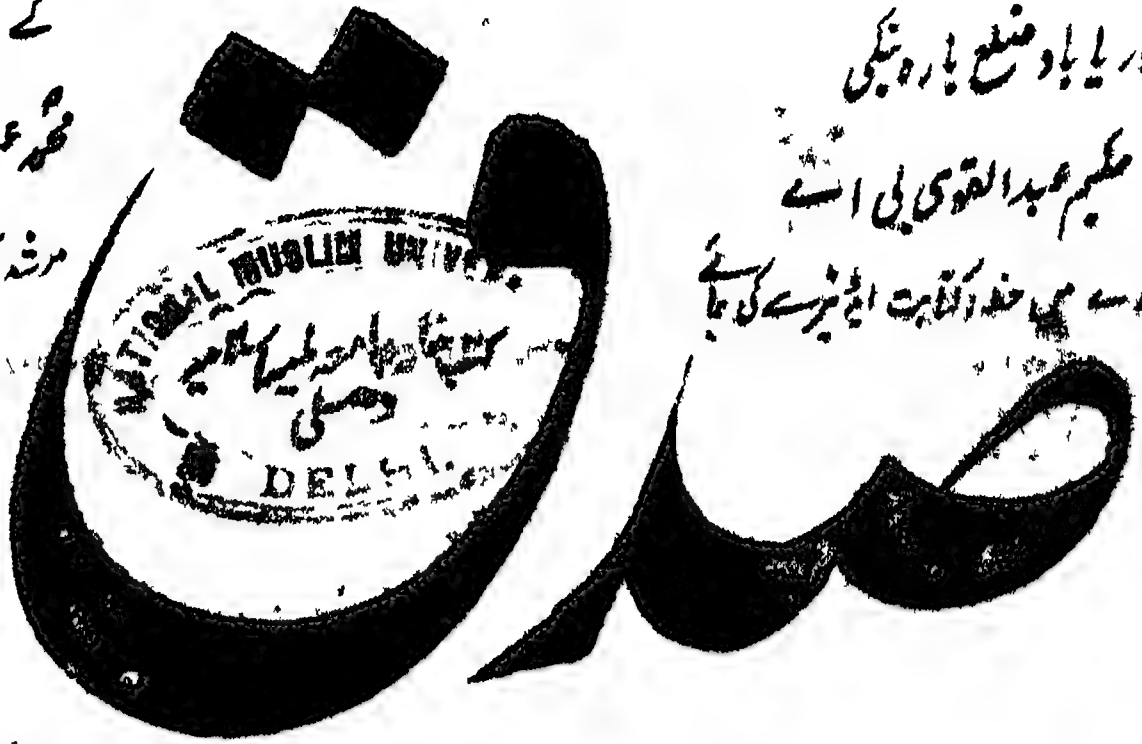 دریاباد ضلع بارہ بنکی
حکیم عبدالقوی بی اے
سے بھی خط و کتابت ایڈیٹر سے کی جائے
صدق
کے
مرشد
NATIONAL MUSLIM UNIVE
کتب خانہ جامعہ ملیہ اسلامیہ
دہلی
DELHI